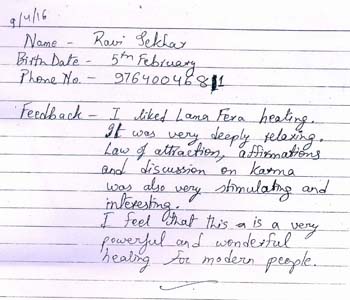 9/4/16
Name - Ravi Sekhar
Birth Date - 5th February
Phone No. - 9764004681
Feedback - I liked Lama Fera healing.
It was very deeply relaxing.
Law of attraction, affirmations
and discussion on karma
was also very stimulating and
interesting.
I feel that this a is a very
powerful and wonderful
healing for modern people.